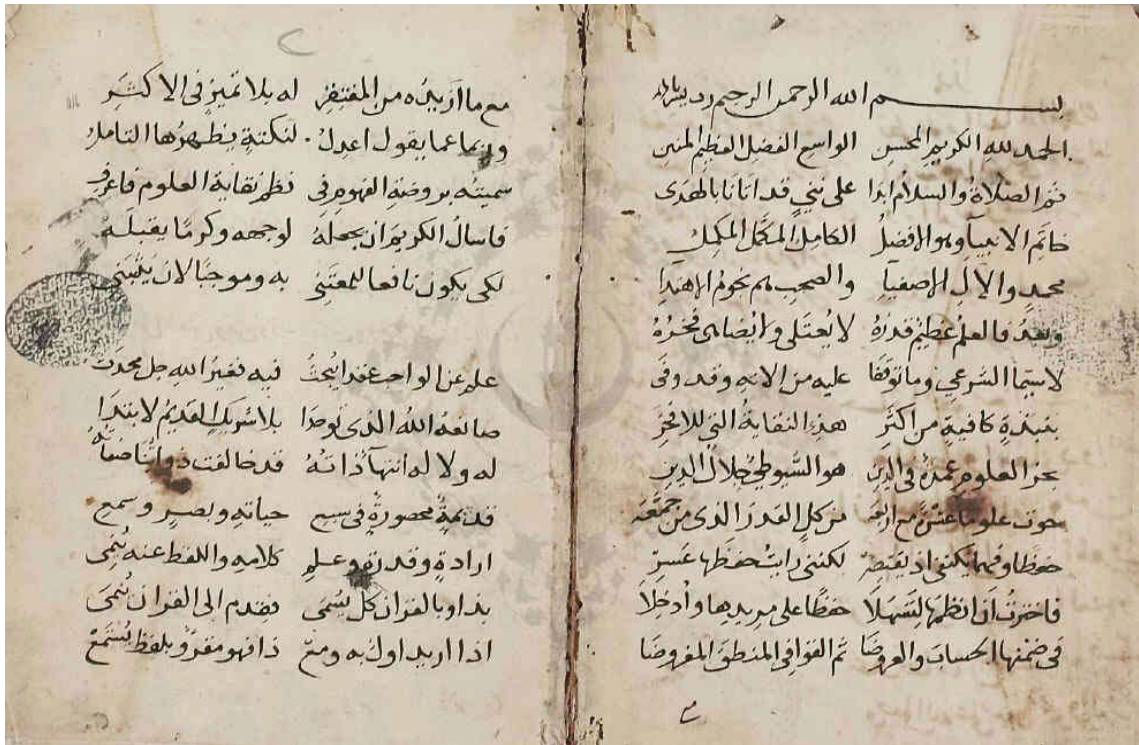 بسم الله الرحمن الرحيم رب يسر
الحمد لله الكريم المحسن الواسع الفضل العظيم المنن
ثم الصلاة والسلام ابدا على نبي قد اتانا بالهدى
خاتم الانبياء وهو الافضل الكامل المكمل المكمل
محمد والال الاصفياء والصحب هم نجوم الاهتداء
وبعد فالعلم عظيم قدره لا يعتلى ولا يضاهى فخره
لا سيما الشرعي وما توقفا عليه من الاته وقد وفى
بنبذة كافية من اكثر هذه النقاية التي للافخر
بحر العلوم عمدة في الدين هو السيوطي جلال الدين
حوت علوما عشرة مع اربعه من كل القدر الذي من جمعه
حفظا وفهما يكتفى اذ يقتصر لكنني رايت حفظها عسر
فاخترت ان انظمها ليسهلا حفظا على مريدها وادخلا
في ضمنها الحساب والعروضا ثم القوافي المنطق المفروضا
مع ما ازيده من المفتقر له بلا تميز في الاكثر
وربما عما يقول اعدل لنكتة يظهرها التامل
سميته بروضة الفهوم في نظم نقاية العلوم فاعرف
فاسال الكريم ان يجعله لوجهه وكرما يقبله
لكي يكون نافعا للمعتني به وموجبا لان يثنى
علم عن الواجب عقدا يبحث فيه فغير الله جل محدث
صانعه الله الذي توحدا بلا شريك القديم لا ابتدا
له ولا له انتهاء ذاته قد خالفت ذواتنا صفاته
قديمة محصورة في سبع حياته وبصر وسمع
ارادة وقدرة وعلم كلامه واللفظ عنه ينمى
بذا وبالقران كل يسمى فقدم الى القران ننمى
اذا اريد اول به ومع ذا فهو مقرو بلفظ يستمع